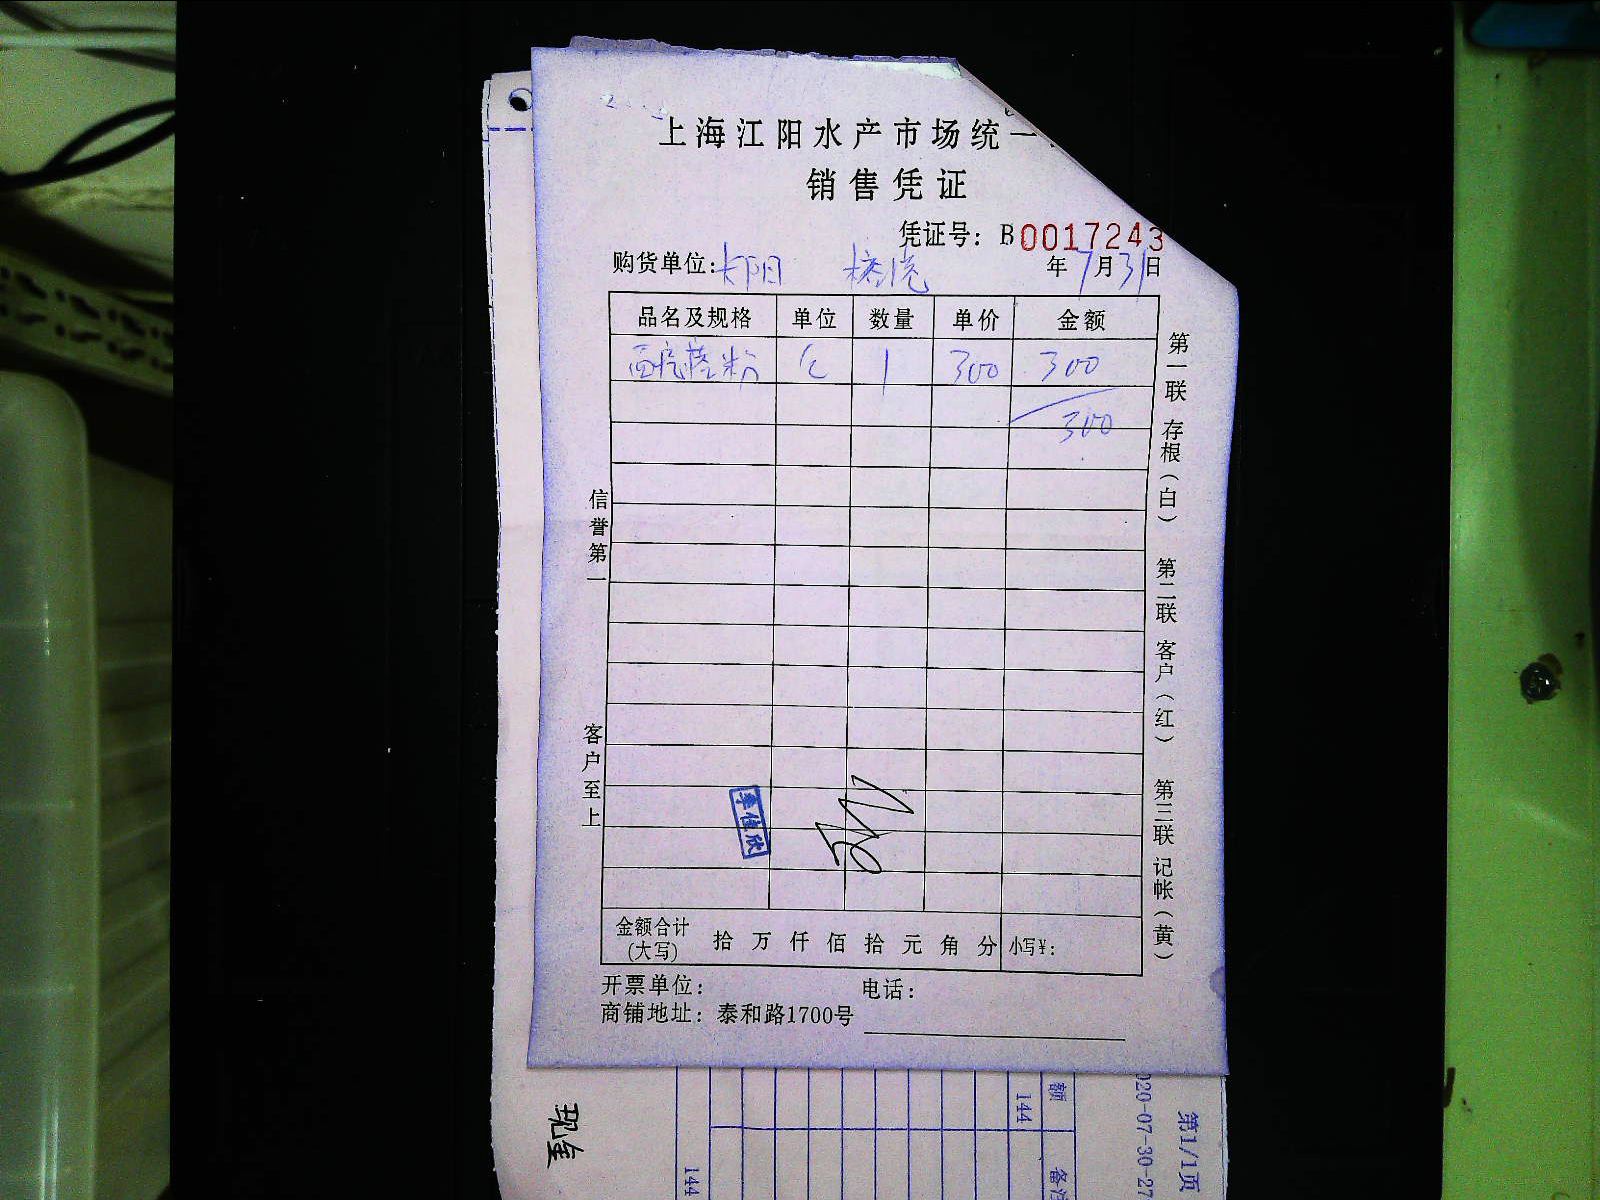 上海江阳水产市场统一
销售凭证
凭证号：B0017243
购货单位：长阳 年7月31日
品名及规格 单位 数量 单价 金额
粉 1 300 300
300
信誉第一
客户至上
第一联 存根（白） 第二联 客户（红） 第三联 记帐（黄）
金额合计（大写） 拾 万 仟 佰 拾 元 角 分 小写¥：
开票单位： 电话：
商铺地址：泰和路1700号
现金
144
144
额
备注
020-07-30-27
第1/1页